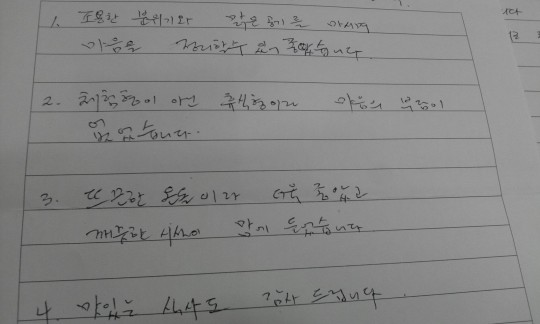 1. 조용한 분위기와 맑은 공기를 마시며
마음을 정리할수 있어 좋았습니다
2. 체험형이 아닌 휴식형이라 마음의 부담이
없었습니다.
3. 따끈한 온돌이라 더욱 좋았고
깨끗한 시설이 맘에 들었습니다.
4. 맛있는 식사도 감사 드립니다.